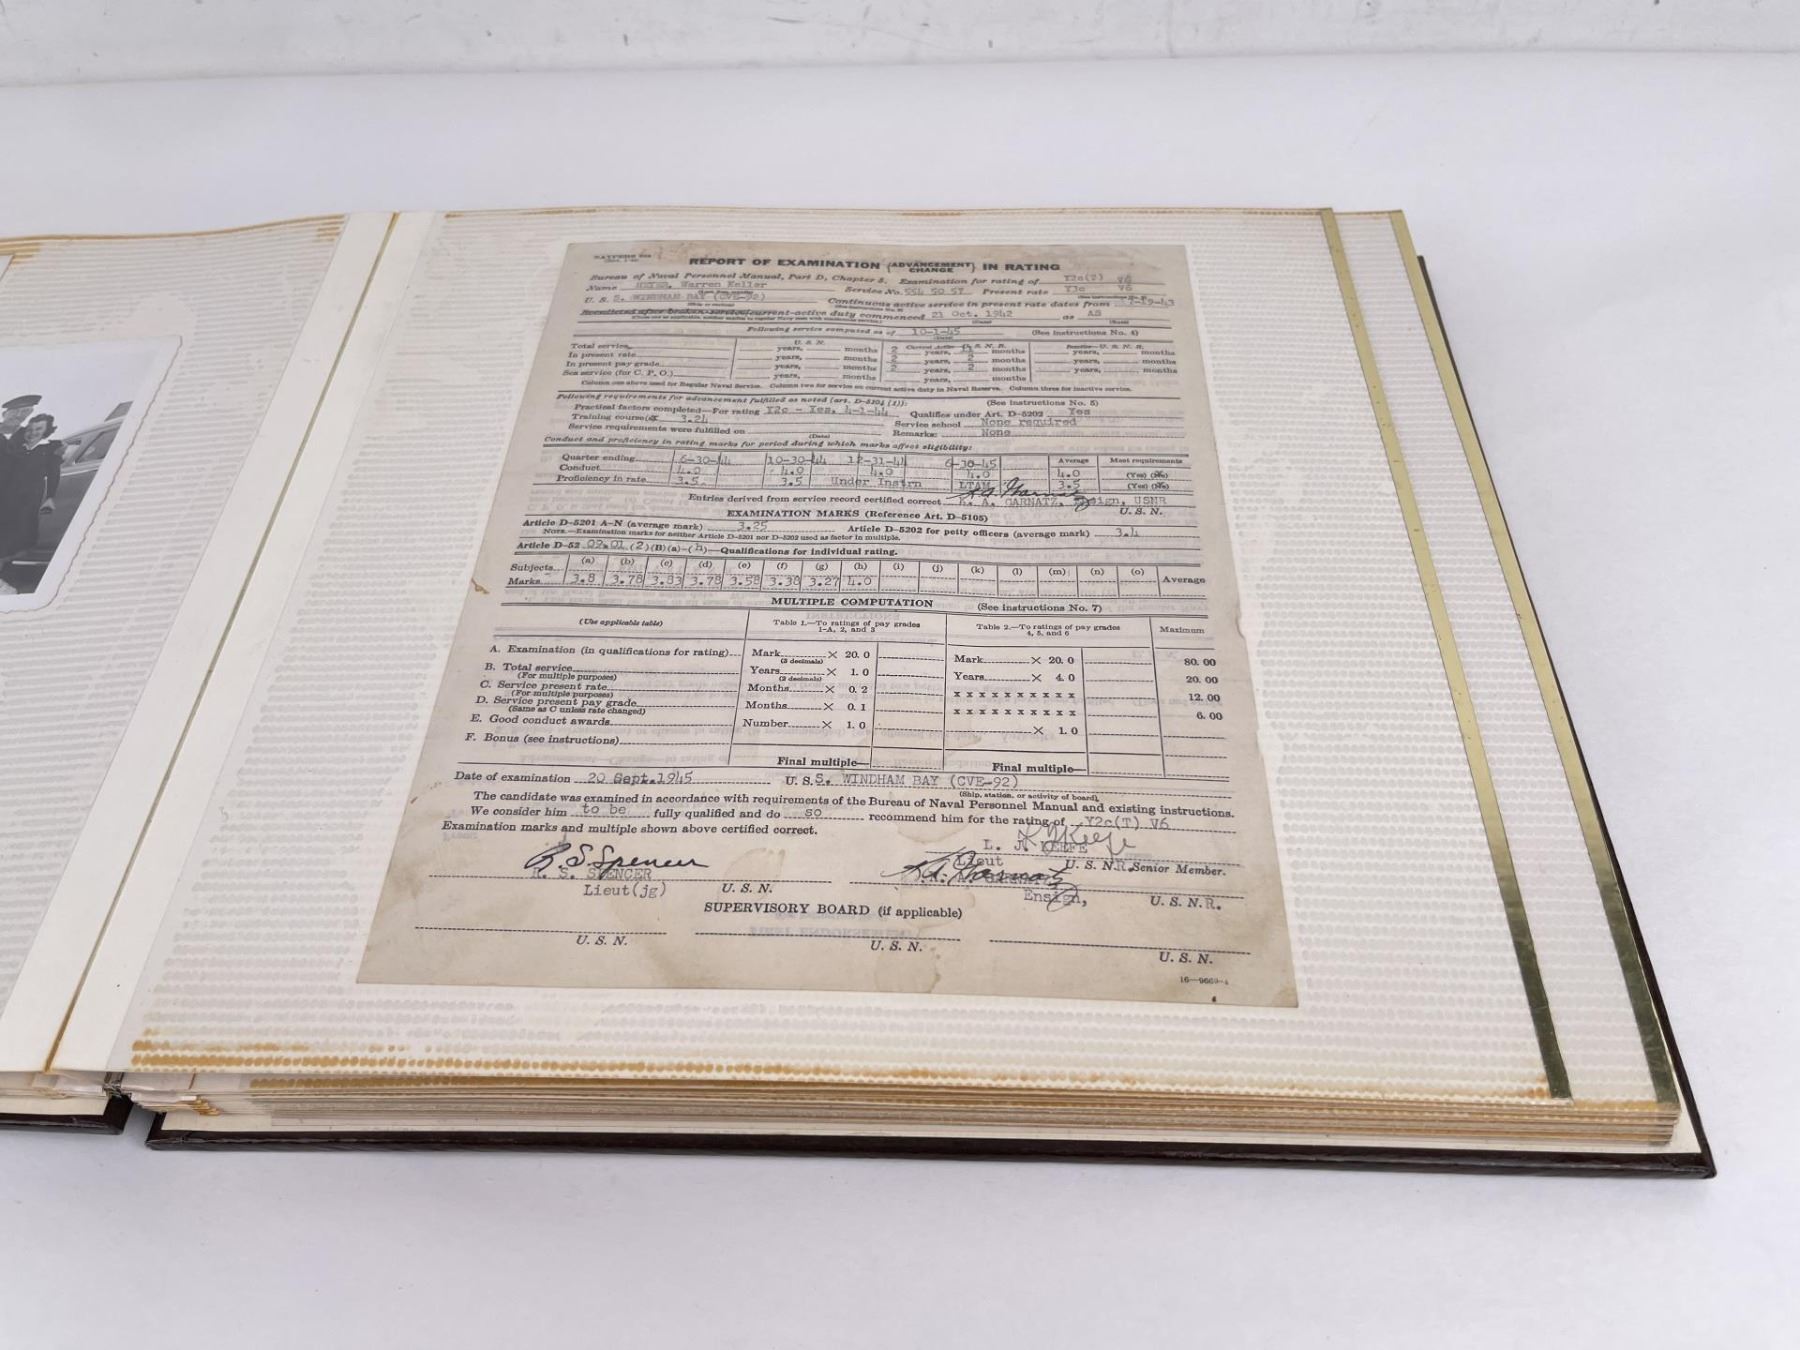 REPORT OF EXAMINATION (ADVANCEMENT CHANGE) IN RATING
Bureau of Naval Personnel Manual, Part D, Chapter 5. Examination for rating of Y2c(T) V6
Name MEYER, Warren Keller Service No. 554 50 57 Present rate Y3c V6
U. S. S. WINDHAM BAY (CVE-92) Continuous active service in present rate dates from
current active duty commenced 21 Oct. 1942 as AS
Following service computed as of 10-1-45 (See instructions No. 4)
U. S. N.
Total service years, months years, months years, months
In present rate years, months 2 years, 2 months years, months
In present pay grade years, months 2 years, 2 months years, months
Sea service (for C. P. O.) years, months years, months years, months
Column one above used for Regular Naval Service. Column two for service on current active duty in Naval Reserve. Column three for inactive service.
Following requirements for advancement fulfilled as noted (art. D-5104 (1)): (See instructions No. 5)
Practical factors completed—For rating Y2c - Yes, 4-1-44 Qualifies under Art. D-5202 Yes
Training courses 3.24 Service school None required
Service requirements were fulfilled on (Date) Remarks: None
Conduct and proficiency in rating marks for period during which marks affect eligibility:
Quarter ending 6-30-44 10-30-44 12-31-44 6-30-45 Average Meet requirements
Conduct 4.0 4.0 4.0 4.0 4.0 (Yes) (No)
Proficiency in rate 3.5 3.5 Under Instrn 3.5 (Yes) (No)
Entries derived from service record certified correct K. A. GARNATZ, Ensign, USNR
U. S. N.
EXAMINATION MARKS (Reference Art. D-5105)
Article D-5201 A-N (average mark) 3.25 Article D-5202 for petty officers (average mark) 3.4
NOTE.—Examination marks for neither Article D-5201 nor D-5202 used as factor in multiple.
Article D-52 09.01 (2)(B)(a)-(h)—Qualifications for individual rating.
Subjects (a) (b) (c) (d) (e) (f) (g) (h) (i) (j) (k) (l) (m) (n) (o) Average
Marks 3.8 3.78 3.83 3.78 3.58 3.38 3.27 4.0
MULTIPLE COMPUTATION (See instructions No. 7)
(Use applicable table) Table 1.—To ratings of pay grades 1-A, 2, and 3 Table 2.—To ratings of pay grades 4, 5, and 6 Maximum
A. Examination (in qualifications for rating) Mark (3 decimals) × 20.0 Mark × 20.0 80.00
B. Total service (For multiple purposes) Years (2 decimals) × 1.0 Years × 4.0 20.00
C. Service present rate (For multiple purposes) Months × 0.2 x x x x x x x x x x 12.00
D. Service present pay grade (Same as C unless rate changed) Months × 0.1 x x x x x x x x x x 6.00
E. Good conduct awards Number × 1.0 × 1.0
F. Bonus (see instructions)
Final multiple— Final multiple—
Date of examination 20 Sept. 1945 U. S. S. WINDHAM BAY (CVE-92)
(Ship, station, or activity of board)
The candidate was examined in accordance with requirements of the Bureau of Naval Personnel Manual and existing instructions.
We consider him to be fully qualified and do so recommend him for the rating of Y2c(T) V6
Examination marks and multiple shown above certified correct.
L. J. KEEFE
Lieut U. S. N.R. Senior Member.
R. S. Spencer
R. S. SPENCER
Lieut(jg) U. S. N.
K. A. Garnatz
Ensign, U. S. N.R.
SUPERVISORY BOARD (if applicable)
U. S. N. U. S. N. U. S. N.